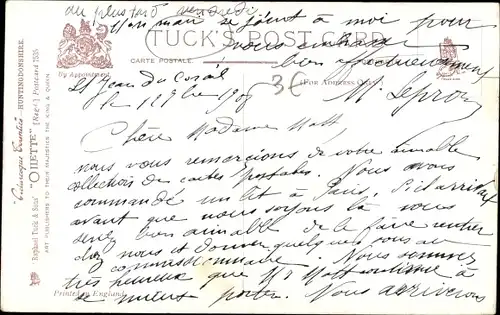 au plus tard vendredi
Mon mari se joint à moi pour
TUCK'S POST CARD
vous embrasser
CARTE POSTALE.
bien affectueusement
(FOR ADDRESS ONLY)
By Appointment
3€
St Jean du
le 1905
M. Lepron
Chère Madame Mott
nous vous remercions de votre aimable
collection de cartes postales. Nous avons
commandé un lit à Paris, s'il arrivait
avant que nous soyons là vous
serez bien aimable de le faire rentrer
chez nous et donner quelques sous au
commissionnaire. Nous sommes
très heureux que Mr Mott continue à
se mieux porter. Nous arriverons
Printed in England
Picturesque Counties HUNTINGDONSHIRE.
Raphael Tuck & Sons' "OILETTE" [Regd.] Postcard 7535
ART PUBLISHERS TO THEIR MAJESTIES THE KING & QUEEN